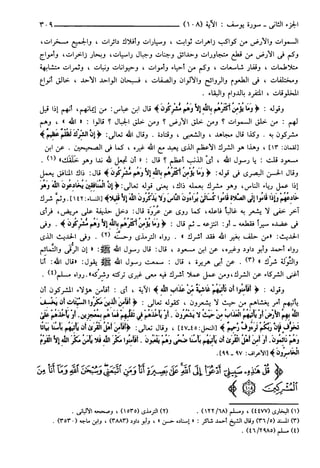 الجزء الثانى ـ سورة يوسف : الآية (١٠٨) ٣٠٩
السموات والأرض من كواكب زاهرات ثوابت ، وسيارات وأفلاك دائرات ، والجميع مسخرات،
وكم فى الأرض من قطع متجاورات وحدائق وجنات وجبال راسيات، وبحار زاخرات، وأمواج
متلاطمات ، وقفار شاسعات ، وكم من أحياء وأموات ، وحيوانات ونبات ، وثمرات متشابهة
ومختلفات ، فى الطعوم والروائح والألوان والصفات ، فسبحان الواحد الأحد ، خالق أنواع
المخلوقات ، المتفرد بالدوام والبقاء .
وقوله : ﴿ وَمَا يُؤْمِنُ أَكْثَرُهُم بِاللَّهِ إِلَّا وَهُم مُّشْرِكُونَ ﴾ قال ابن عباس: من إيمانهم، أنهم إذا قيل
لهم : من خلق السموات ؟ ومن خلق الأرض ؟ ومن خلق الجبال ؟ قالوا : « الله » ، وهم
مشركون به . وكذا قال مجاهد ، والشعبى ، وقتادة . وقال الله تعالى: ﴿ إِنَّ الشِّرْكَ لَظُلْمٌ عَظِيمٌ ﴾
[لقمان: ١٣] وهذا هو الشرك الأعظم الذى يعبد مع الله غيره ، كما فى الصحيحين . عن ابن
مسعود قلت : يا رسول الله ، أىّ الذنب أعظم ؟ قال : « أن تجعل لله نداً وهو خَلَقَك» (١) .
وقال الحسن البصرى فى قوله: ﴿ وَمَا يُؤْمِنُ أَكْثَرُهُم بِاللَّهِ إِلَّا وَهُم مُّشْرِكُونَ ﴾ قال: ذاك المنافق يعمل
إذا عمل رياء الناس، وهو مشرك بعمله ذاك، يعنى قوله تعالى: ﴿ إِنَّ الْمُنَافِقِينَ يُخَادِعُونَ اللَّهَ وَهُوَ
خَادِعُهُمْ وَإِذَا قَامُوا إِلَى الصَّلَاةِ قَامُوا كُسَالَىٰ يُرَاءُونَ النَّاسَ وَلَا يَذْكُرُونَ اللَّهَ إِلَّا قَلِيلًا ﴾ [النساء: ١٤٢]. وثم شرك
آخر خفى لا يشعر به غالباً فاعله، كما روى عن عروة قال: دخل حذيفة على مريض، فرأى
فى عضده سيراً فقطعه ـ أو : انتزعه ـ ثم قال : ﴿ وَمَا يُؤْمِنُ أَكْثَرُهُم بِاللَّهِ إِلَّا وَهُم مُّشْرِكُونَ ﴾ . وفى
الحديث: «من حلف بغير الله فقد أشرك » . رواه الترمذى وحسنه (٢) . وفى الحديث الذى
رواه أحمد وأبو داود وغيره، عن ابن مسعود ، قال: قال رسول الله ﷺ : « إن الرُّقَى والتَّمائم
والتِّوَلَة شرك » (٣) . عن أبى هريرة ، قال : سمعت رسول الله ﷺ يقول: «قال الله: أنا
أغنى الشركاء عن الشرك،ومن عمل عملا أشرك فيه معى غيرى تركته وشركه». رواه مسلم(٤) .
وقوله : ﴿ أَفَأَمِنُوا أَن تَأْتِيَهُمْ غَاشِيَةٌ مِّنْ عَذَابِ اللَّهِ ﴾ الآية ، أى : أفأمن هؤلاء المشركون أن
يأتيهم أمر يغشاهم من حيث لا يشعرون ، كقوله تعالى : ﴿ أَفَأَمِنَ الَّذِينَ مَكَرُوا السَّيِّئَاتِ أَن يَخْسِفَ
اللَّهُ بِهِمُ الْأَرْضَ أَوْ يَأْتِيَهُمُ الْعَذَابُ مِنْ حَيْثُ لَا يَشْعُرُونَ . أَوْ يَأْخُذَهُمْ فِي تَقَلُّبِهِمْ فَمَا هُم بِمُعْجِزِينَ . أَوْ يَأْخُذَهُمْ عَلَىٰ
تَخَوُّفٍ فَإِنَّ رَبَّكُمْ لَرَءُوفٌ رَّحِيمٌ ﴾ [النحل: ٤٥-٤٧] ، وقال تعالى: ﴿ أَفَأَمِنَ أَهْلُ الْقُرَىٰ أَن يَأْتِيَهُم بَأْسُنَا بَيَاتًا
وَهُمْ نَائِمُونَ . أَوَأَمِنَ أَهْلُ الْقُرَىٰ أَن يَأْتِيَهُم بَأْسُنَا ضُحًى وَهُمْ يَلْعَبُونَ . أَفَأَمِنُوا مَكْرَ اللَّهِ فَلَا يَأْمَنُ مَكْرَ اللَّهِ إِلَّا الْقَوْمُ
الْخَاسِرُونَ ﴾ [الأعراف: ٩٧ ـ ٩٩].
قُلْ هَٰذِهِ سَبِيلِي أَدْعُو إِلَى اللَّهِ عَلَىٰ بَصِيرَةٍ أَنَا وَمَنِ اتَّبَعَنِي وَسُبْحَانَ اللَّهِ وَمَا أَنَا مِنَ
الْمُشْرِكِينَ
(١) البخارى (٤٤٧٧) ، ومسلم (١٢٢/٦٨) . (٢) الترمذى (١٥٣٥) ، وصححه الألبانى .
(٣) المسند (٣٦١٥) وقال الشيخ أحمد شاكر : « إسناده حسن » ، وأبو داود (٣٨٨٣) ، وابن ماجه (٣٥٣٠) .
(٤) مسلم (٤٦/٢٩٨٥) .